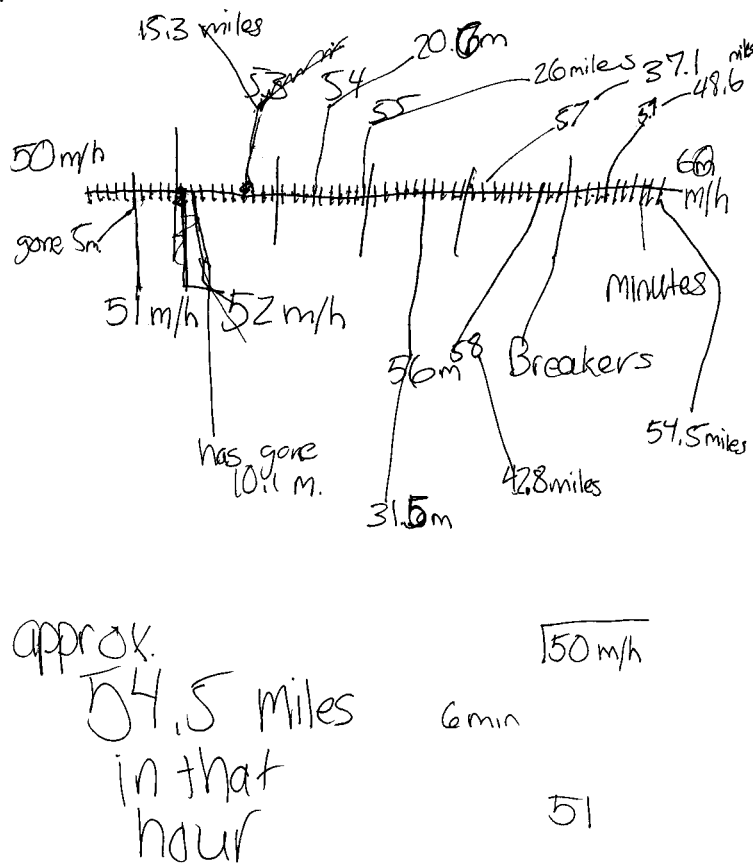 15.3 miles
53
54
20.6m
55
26 miles
57
37.1
miles
48.6
50 m/h
60
m/h
gone 5m
51 m/h
52 m/h
minutes
56m
58
Breakers
54.5 miles
has gone
10.1 m.
42.8 miles
31.5m
approx.
54.5 miles
in that
hour
50 m/h
6 min
51